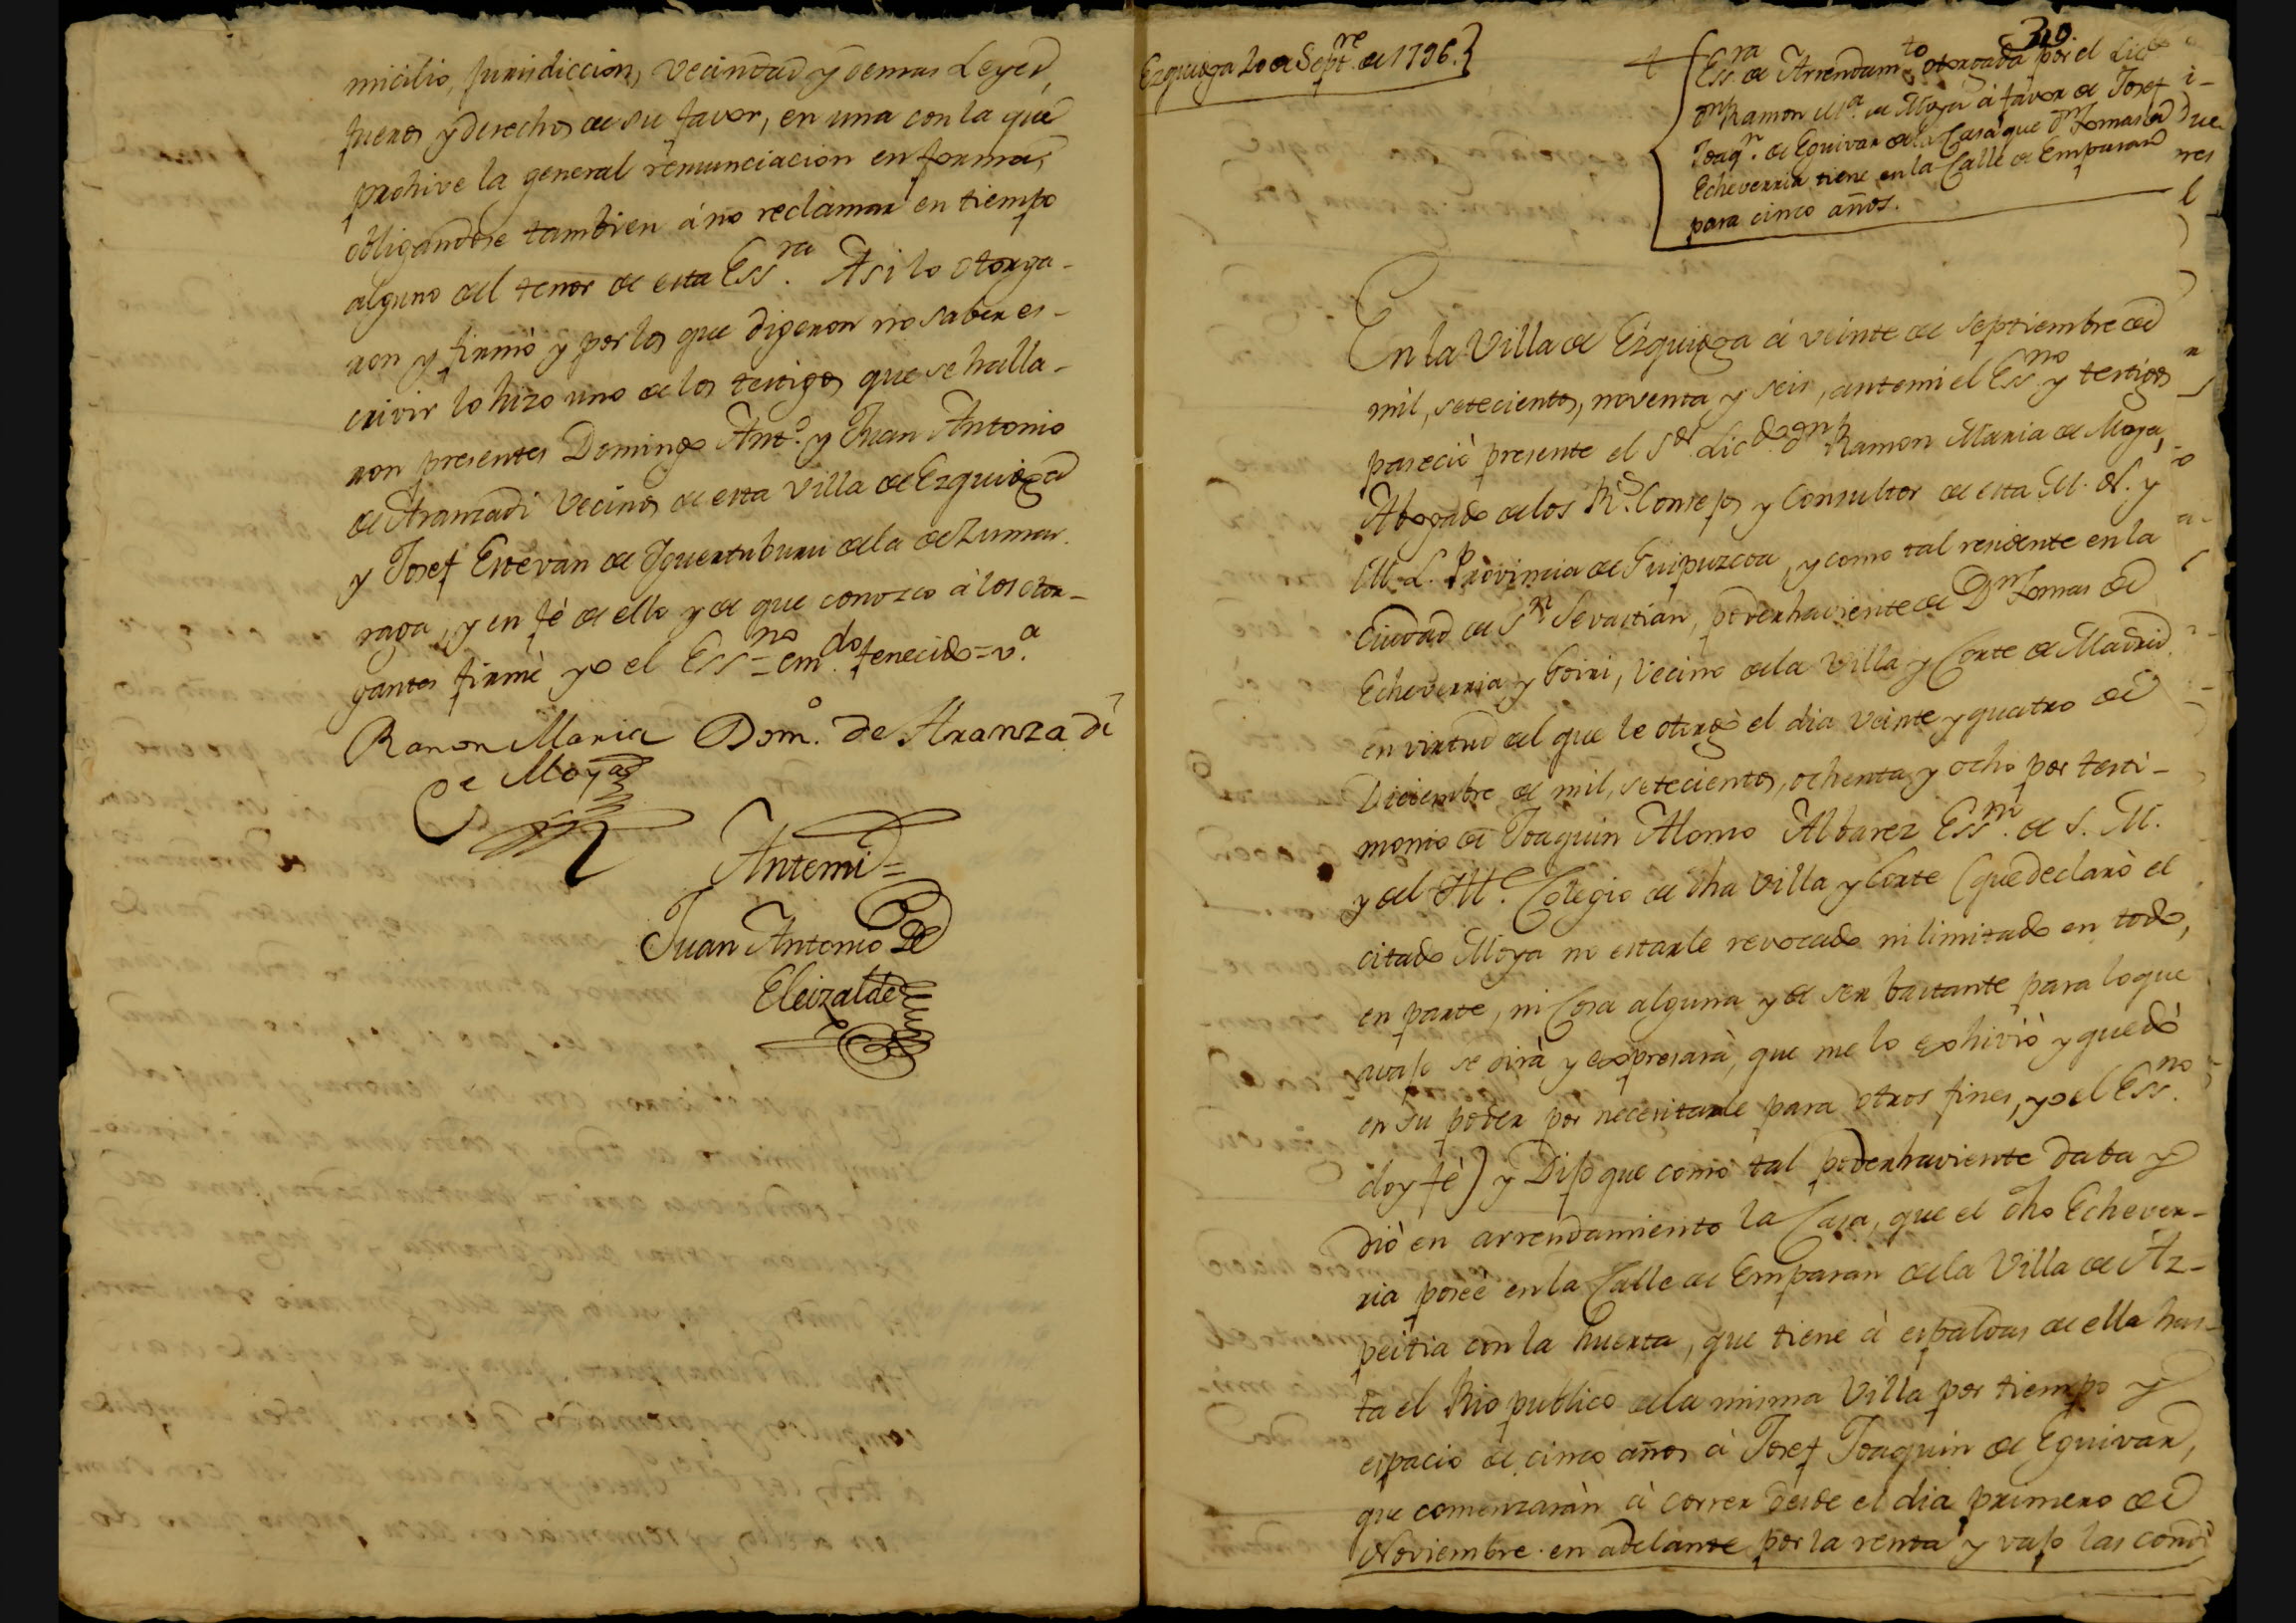 micilio, jurisdiccion, vecindad y demas Leyes,
fueros y derechos de su favor, en una con la que
prohive la general renunciacion en forma,
obligandose tambien á no reclamar en tiempo
alguno del tenor de esta Ess.ra Asi lo otorga-
ron y firmò y por los que digeron no saber es-
crivir lo hizo uno de los testigos que se halla-
ron presentes Domingo Ant.o y Juan Antonio
de Aranzadi Vecinos de esta Villa de Ezquioga
y Josef Estevan de Yguertuburu de la de Zumar-
raga, y en fè de ello y de que conozco à los otor-
gantes firmè yo el Ess.no = em.do fenecido = v.a
Ramon Maria Dom.o de Aranzadi
de Moya
Antemi =
Juan Antonio De
Eleizalde
Ezquioga 20 de Sept.re de 1796.
310.
Ess.ra de Arrendam.to otorgada por el Lic.do
Dn Ramon M.a de Moya à favor de Josef
Joaq.n de Eguivar de la Casa que Dn Tomas de
Echeverria tiene en la Calle de Emparan
para cinco años.
En la Villa de Ezquioga à veinte de Septiembre de
mil, setecientos, noventa y seis, antemi el Ess.no y testigos
pareciò presente el S.or Lic.do Dn Ramon Maria de Moya,
Abogado de los R.s Consejos y Consultor de esta M. N. y
M. L. Provincia de Guipuzcoa, y como tal residente en la
Ciudad de S.n Sevastian, poderhaviente de Dn Tomas de
Echeverria y Goiri, Vecino de la Villa y Corte de Madrid
en virtud del que le otorgò el dia veinte y quatro de
Diciembre de mil, setecientos, ochenta y ocho por testi-
monio de Joaquin Alonso Albarez Ess.no de S. M.
y del Ill.e Colegio de dha Villa y Corte (que declarò el
citado Moya no estarle revocado ni limitado en todo,
en parte, ni Cosa alguna y de ser bastante para lo que
avajo se dirà y expresarà, que me lo exhiviò y quedò
en su poder por necesitarle para otros fines, yo el Ess.no
doy fè) y Dijo que como tal poderhaviente daba y
diò en arrendamiento la Casa, que el dho Echever-
ria poseè en la Calle de Emparan de la Villa de Az-
peitia con la huerta, que tiene à espaldas de ella has-
ta el Rio publico de la misma Villa por tiempo y
espacio de cinco años à Josef Joaquin de Eguivar,
que comenzaràn à correr desde el dia primero de
Noviembre en adelante por la renta y vajo las condi